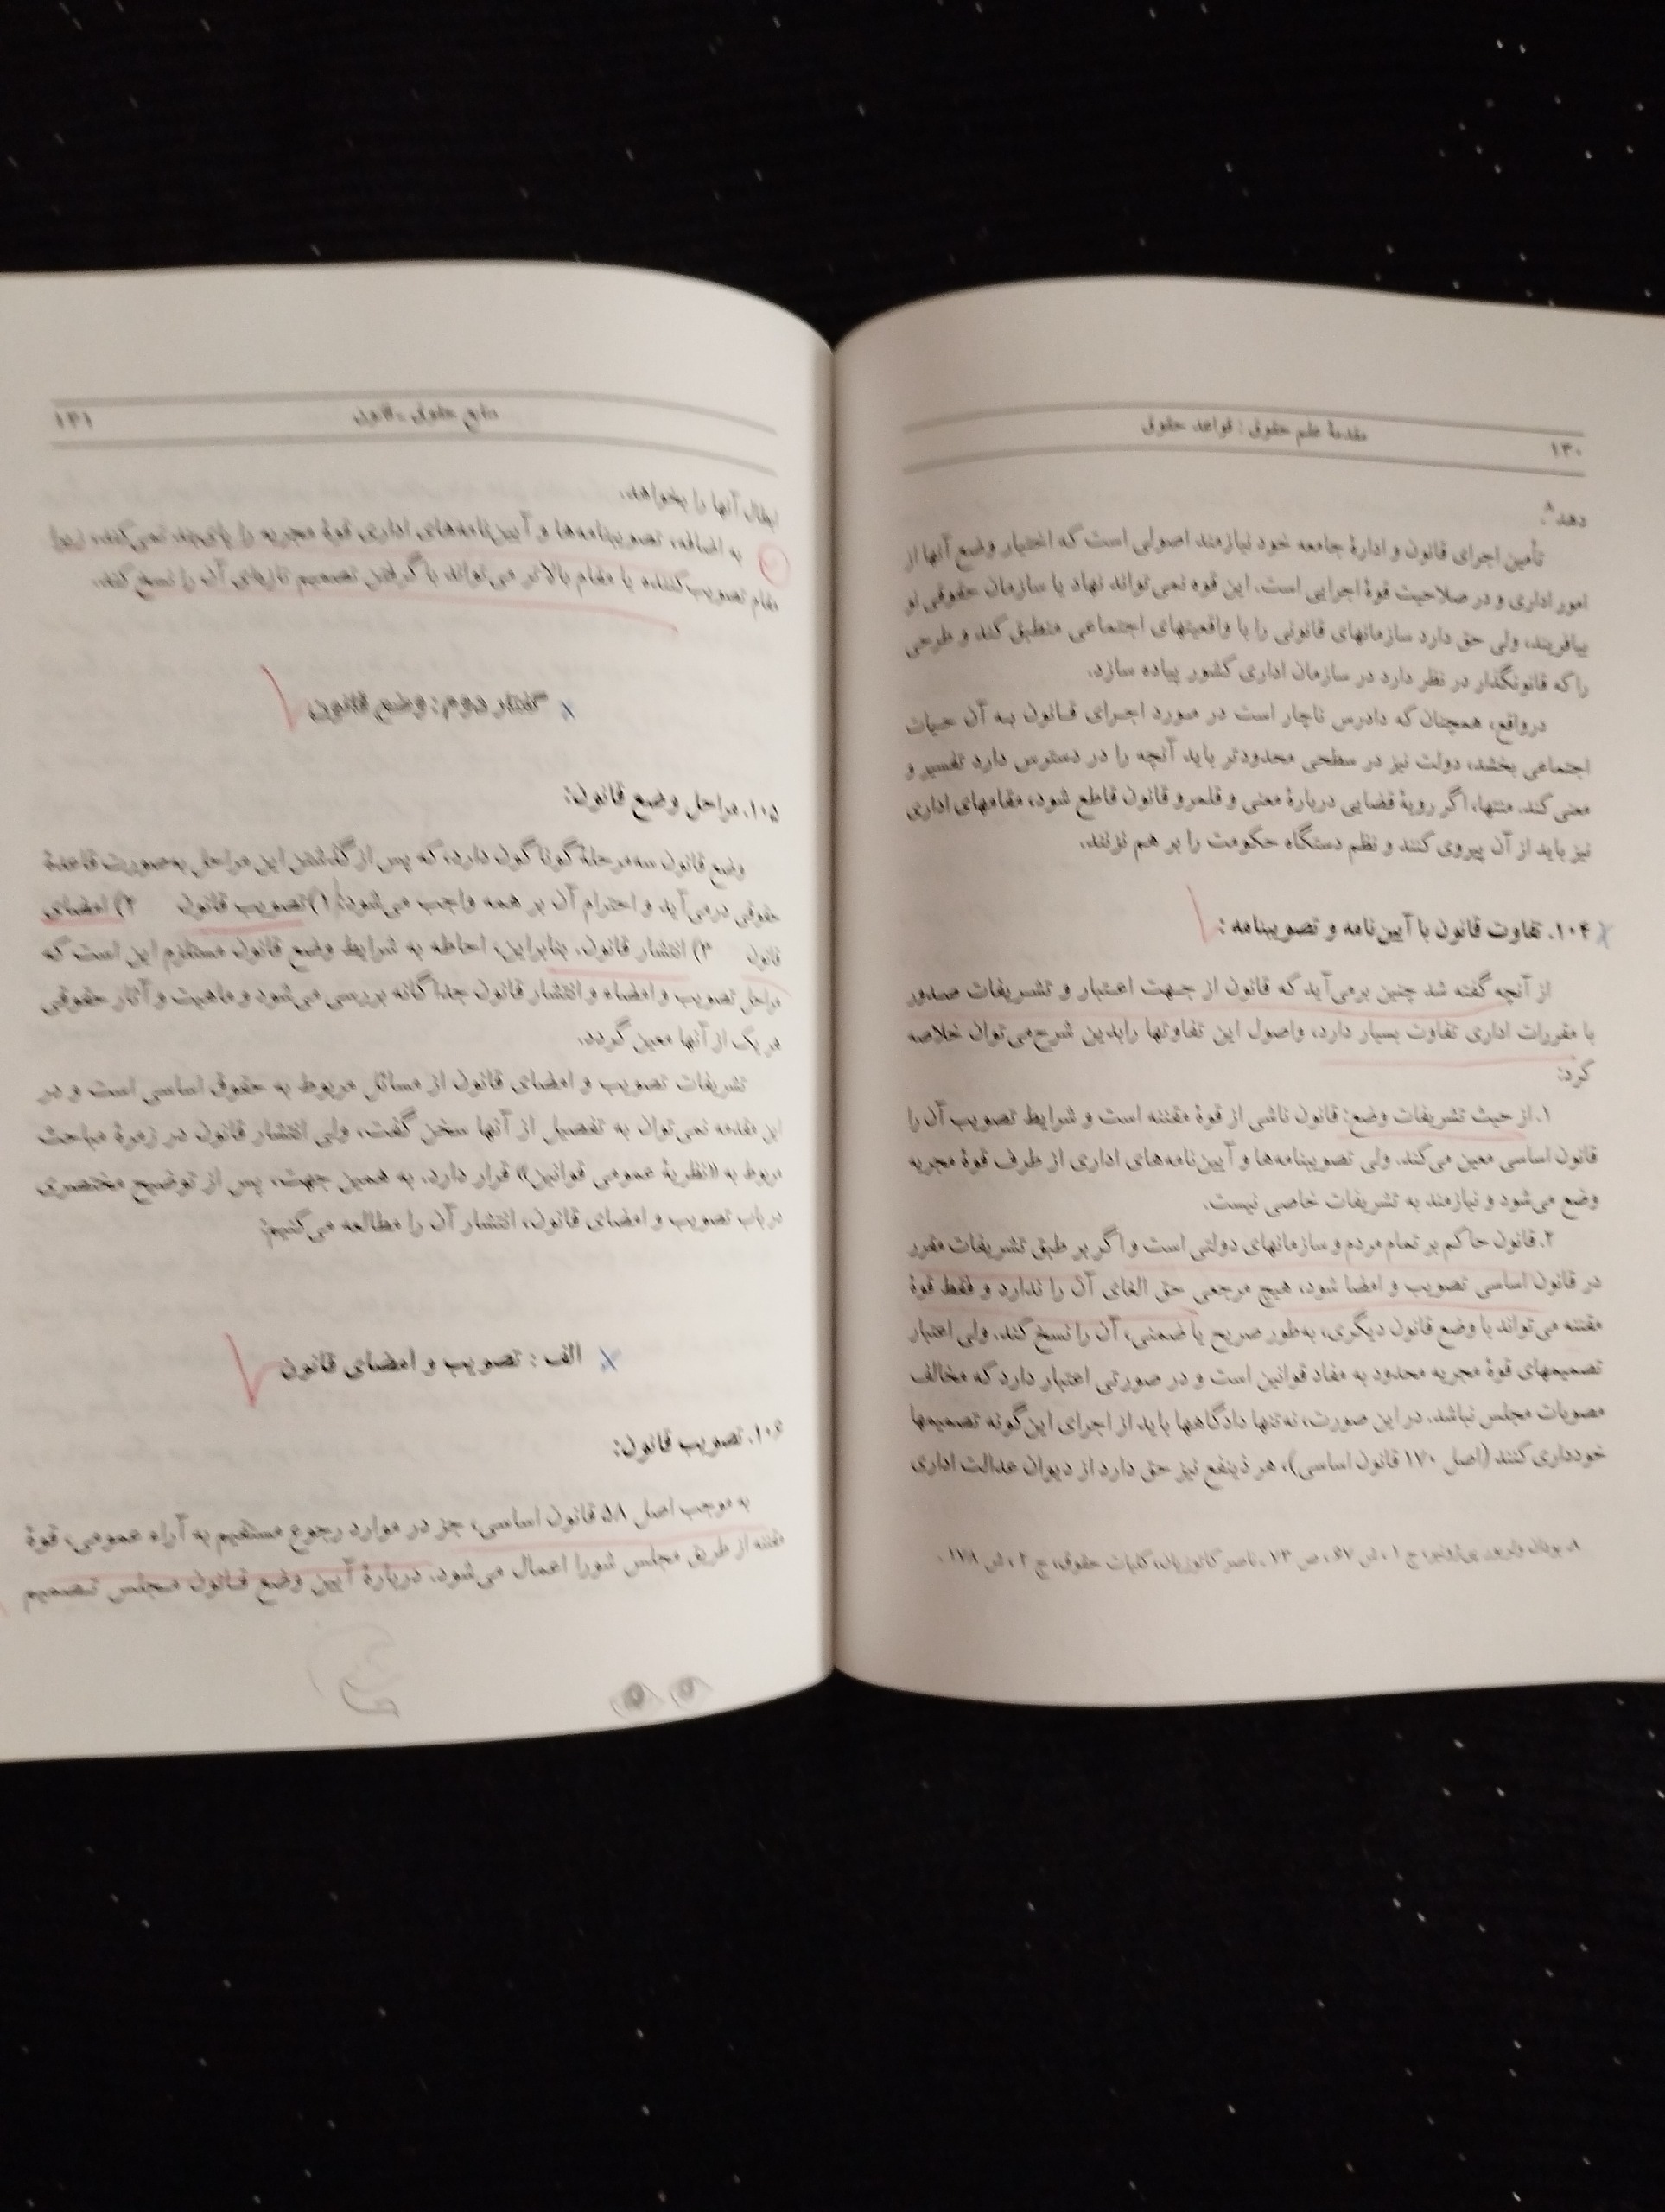 ۱۳۰
مقدمهٔ علم حقوق : قواعد حقوق
دهد۸.
تأمین اجرای قانون و ادارهٔ جامعه خود نیازمند اصولی است که اختیار وضع آنها از
امور اداری و در صلاحیت قوهٔ اجرایی است. این قوه نمی‌تواند نهاد یا سازمان حقوقی نو
بیافریند، ولی حق دارد سازمانهای قانونی را با واقعیتهای اجتماعی منطبق کند و طرحی
را که قانونگذار در نظر دارد در سازمان اداری کشور پیاده سازد.
درواقع، همچنان که دادرس ناچار است در مورد اجرای قانون به آن حیات
اجتماعی بخشد، دولت نیز در سطحی محدودتر باید آنچه را در دسترس دارد تفسیر و
معنی کند. منتها، اگر رویهٔ قضایی دربارهٔ معنی و قلمرو قانون قاطع شود، مقامهای اداری
نیز باید از آن پیروی کنند و نظم دستگاه حکومت را بر هم نزنند.
۱۰۴. تفاوت قانون با آیین‌نامه و تصویبنامه :
از آنچه گفته شد چنین برمی‌آید که قانون از جهت اعتبار و تشریفات صدور
با مقررات اداری تفاوت بسیار دارد، واصول این تفاوتها رابدین شرح می‌توان خلاصه
کرد:
۱. از حیث تشریفات وضع: قانون ناشی از قوهٔ مقننه است و شرایط تصویب آن را
قانون اساسی معین می‌کند. ولی تصویبنامه‌ها و آیین‌نامه‌های اداری از طرف قوهٔ مجریه
وضع می‌شود و نیازمند به تشریفات خاصی نیست.
۲. قانون حاکم بر تمام مردم و سازمانهای دولتی است و اگر بر طبق تشریفات مقرر
در قانون اساسی تصویب و امضا شود، هیچ مرجعی حق الغای آن را ندارد و فقط قوهٔ
مقننه می‌تواند با وضع قانون دیگری، به‌طور صریح یا ضمنی، آن را نسخ کند. ولی اعتبار
تصمیمهای قوهٔ مجریه محدود به مفاد قوانین است و در صورتی اعتبار دارد که مخالف
مصوبات مجلس نباشد. در این صورت، نه‌تنها دادگاهها باید از اجرای این‌گونه تصمیمها
خودداری کنند (اصل ۱۷۰ قانون اساسی)، هر ذینفع نیز حق دارد از دیوان عدالت اداری
۸. ج ۱، ش ۶۷، ص ۷۳ ـ ناصر کاتوزیان، کلیات حقوق، ج ۲، ش ۱۷۸.
منابع حقوق ـ قانون
۱۳۱
ابطال آنها را بخواهد.
به اضافه، تصویبنامه‌ها و آیین‌نامه‌های اداری قوهٔ مجریه را پای‌بند نمی‌کند، زیرا
مقام تصویب‌کننده یا مقام بالاتر می‌تواند با گرفتن تصمیم تازه‌ای آن را نسخ کند.
گفتار دوم: وضع قانون
۱۰۵. مراحل وضع قانون:
وضع قانون سه‌مرحلهٔ گوناگون دارد، که پس از گذشتن این مراحل به‌صورت قاعدهٔ
حقوقی درمی‌آید و احترام آن بر همه واجب می‌شود: ۱) تصویب قانون ۲) امضای
قانون ۳) انتشار قانون. بنابراین، احاطه به شرایط وضع قانون مستلزم این است که
مراحل تصویب و امضاء و انتشار قانون جداگانه بررسی می‌شود و ماهیت و آثار حقوقی
هر یک از آنها معین گردد.
تشریفات تصویب و امضای قانون از مسائل مربوط به حقوق اساسی است و در
این مقدمه نمی‌توان به تفصیل از آنها سخن گفت، ولی انتشار قانون در زمرهٔ مباحث
مربوط به «نظریهٔ عمومی قوانین» قرار دارد. به همین جهت، پس از توضیح مختصری
در باب تصویب و امضای قانون، انتشار آن را مطالعه می‌کنیم:
الف : تصویب و امضای قانون
۱۰۶. تصویب قانون:
به موجب اصل ۵۸ قانون اساسی، جز در موارد رجوع مستقیم به آراء عمومی، قوهٔ
مقننه از طریق مجلس شورا اعمال می‌شود. دربارهٔ آیین وضع قانون مجلس تصمیم